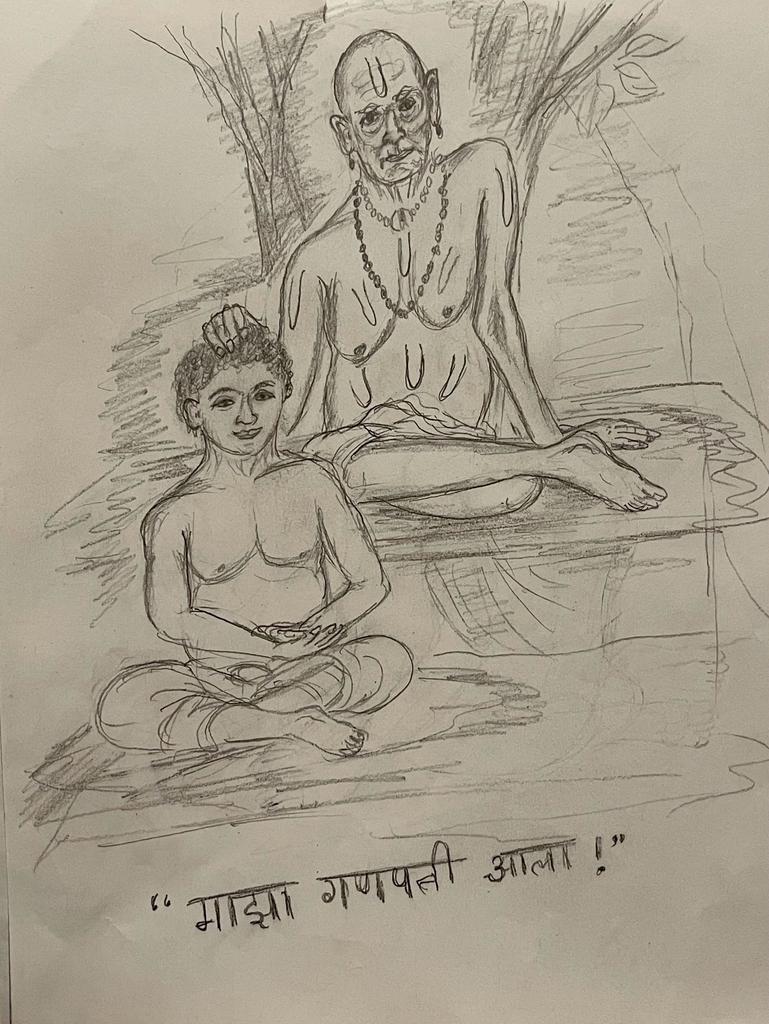 “माझा गणपती आला!”